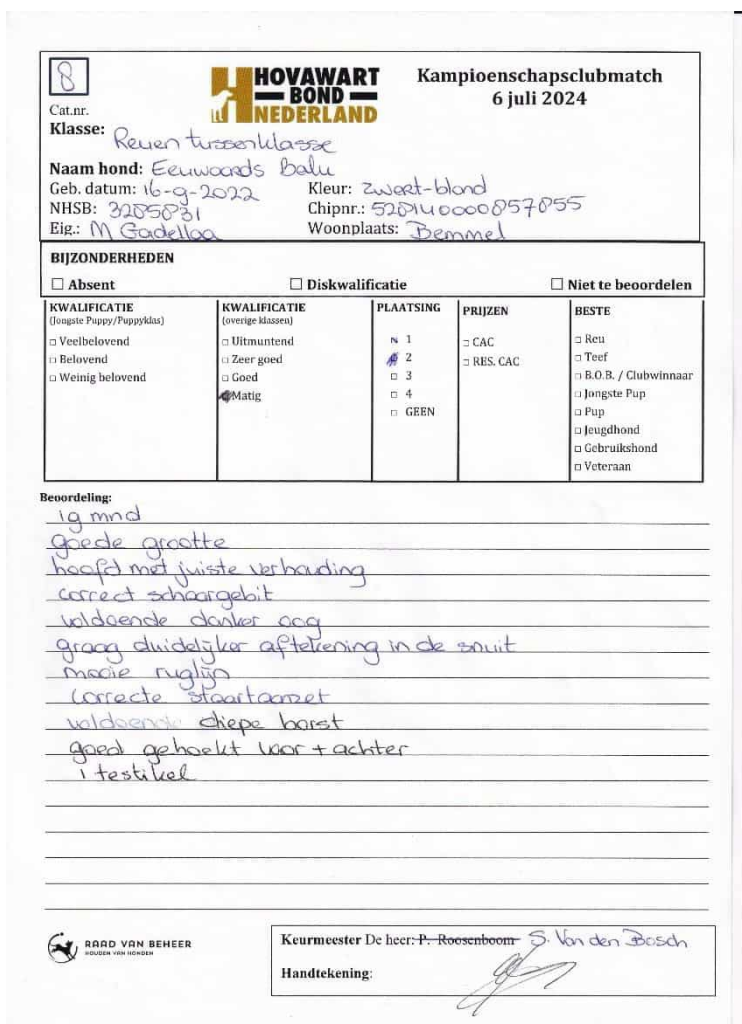 8
HOVAWART
BOND
NEDERLAND
Kampioenschapsclubmatch
6 juli 2024
Cat.nr.
Klasse: Reuen tussenklasse
Naam hond: Eeuwoords Balu
Geb. datum: 16-9-2022 Kleur: zwart-blond
NHSB: 3285831 Chipnr.: 528140000857855
Eig.: M Gadellaa Woonplaats: Bemmel
BIJZONDERHEDEN
Absent Diskwalificatie Niet te beoordelen
KWALIFICATIE KWALIFICATIE PLAATSING PRIJZEN BESTE
(Jongste Puppy/Puppyklas) (overige klassen)
Veelbelovend Uitmuntend 1 CAC Reu
Belovend Zeer goed 2 RES. CAC Teef
Weinig belovend Goed 3 B.O.B. / Clubwinnaar
Matig 4 Jongste Pup
GEEN Pup
Jeugdhond
Gebruikshond
Veteraan
Beoordeling:
19 mnd
goede grootte
hoofd met juiste verhouding
correct schaargebit
voldoende donker oog
graag duidelijker aftekening in de snuit
mooie ruglijn
correcte staartaanzet
voldoende diepe borst
goed gehoekt voor + achter
1 testikel
RAAD VAN BEHEER
HOUDEN VAN HONDEN
Keurmeester De heer: P. Roosenboom S. Van den Bosch
Handtekening: